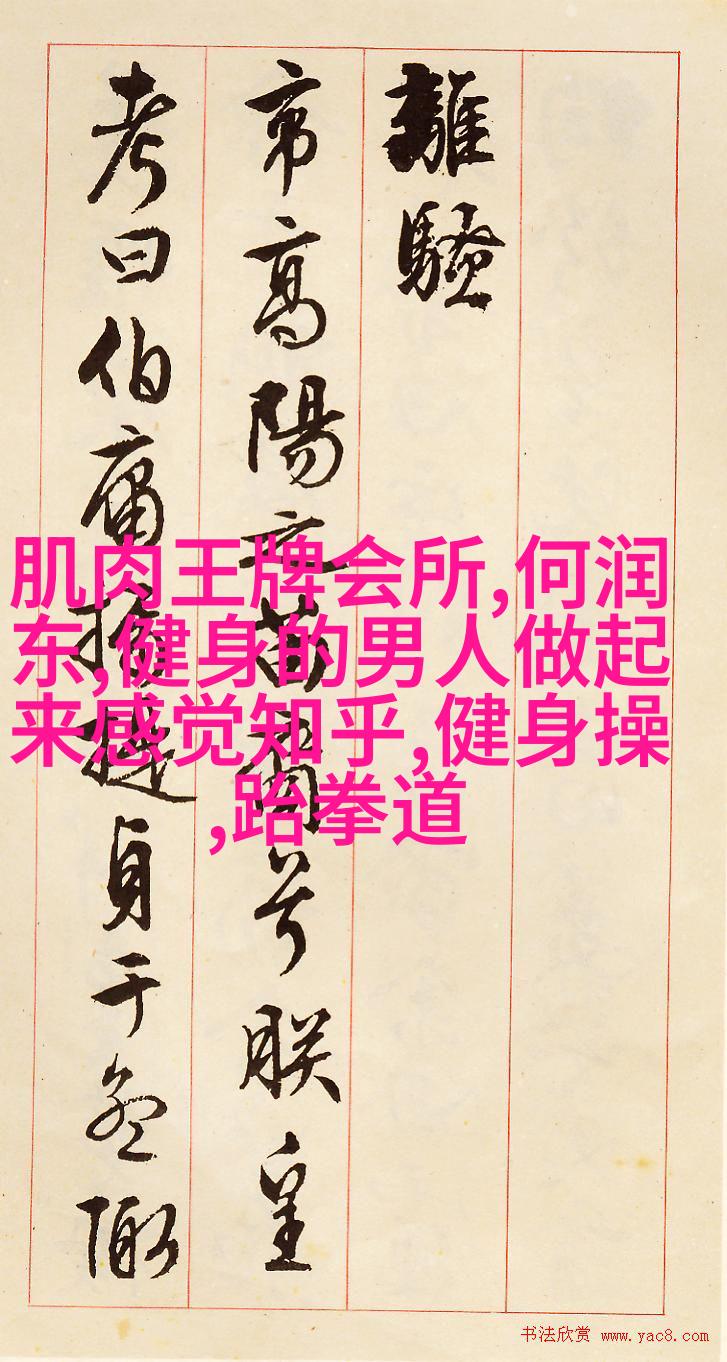 離騷
帝高陽之苗裔兮朕皇
考曰伯庸攝提貞于孟陬
肌肉王牌会所,何润
东,健身的男人做起
来感觉知乎,健身操
,跆拳道
书法欣赏 www.yac8.com